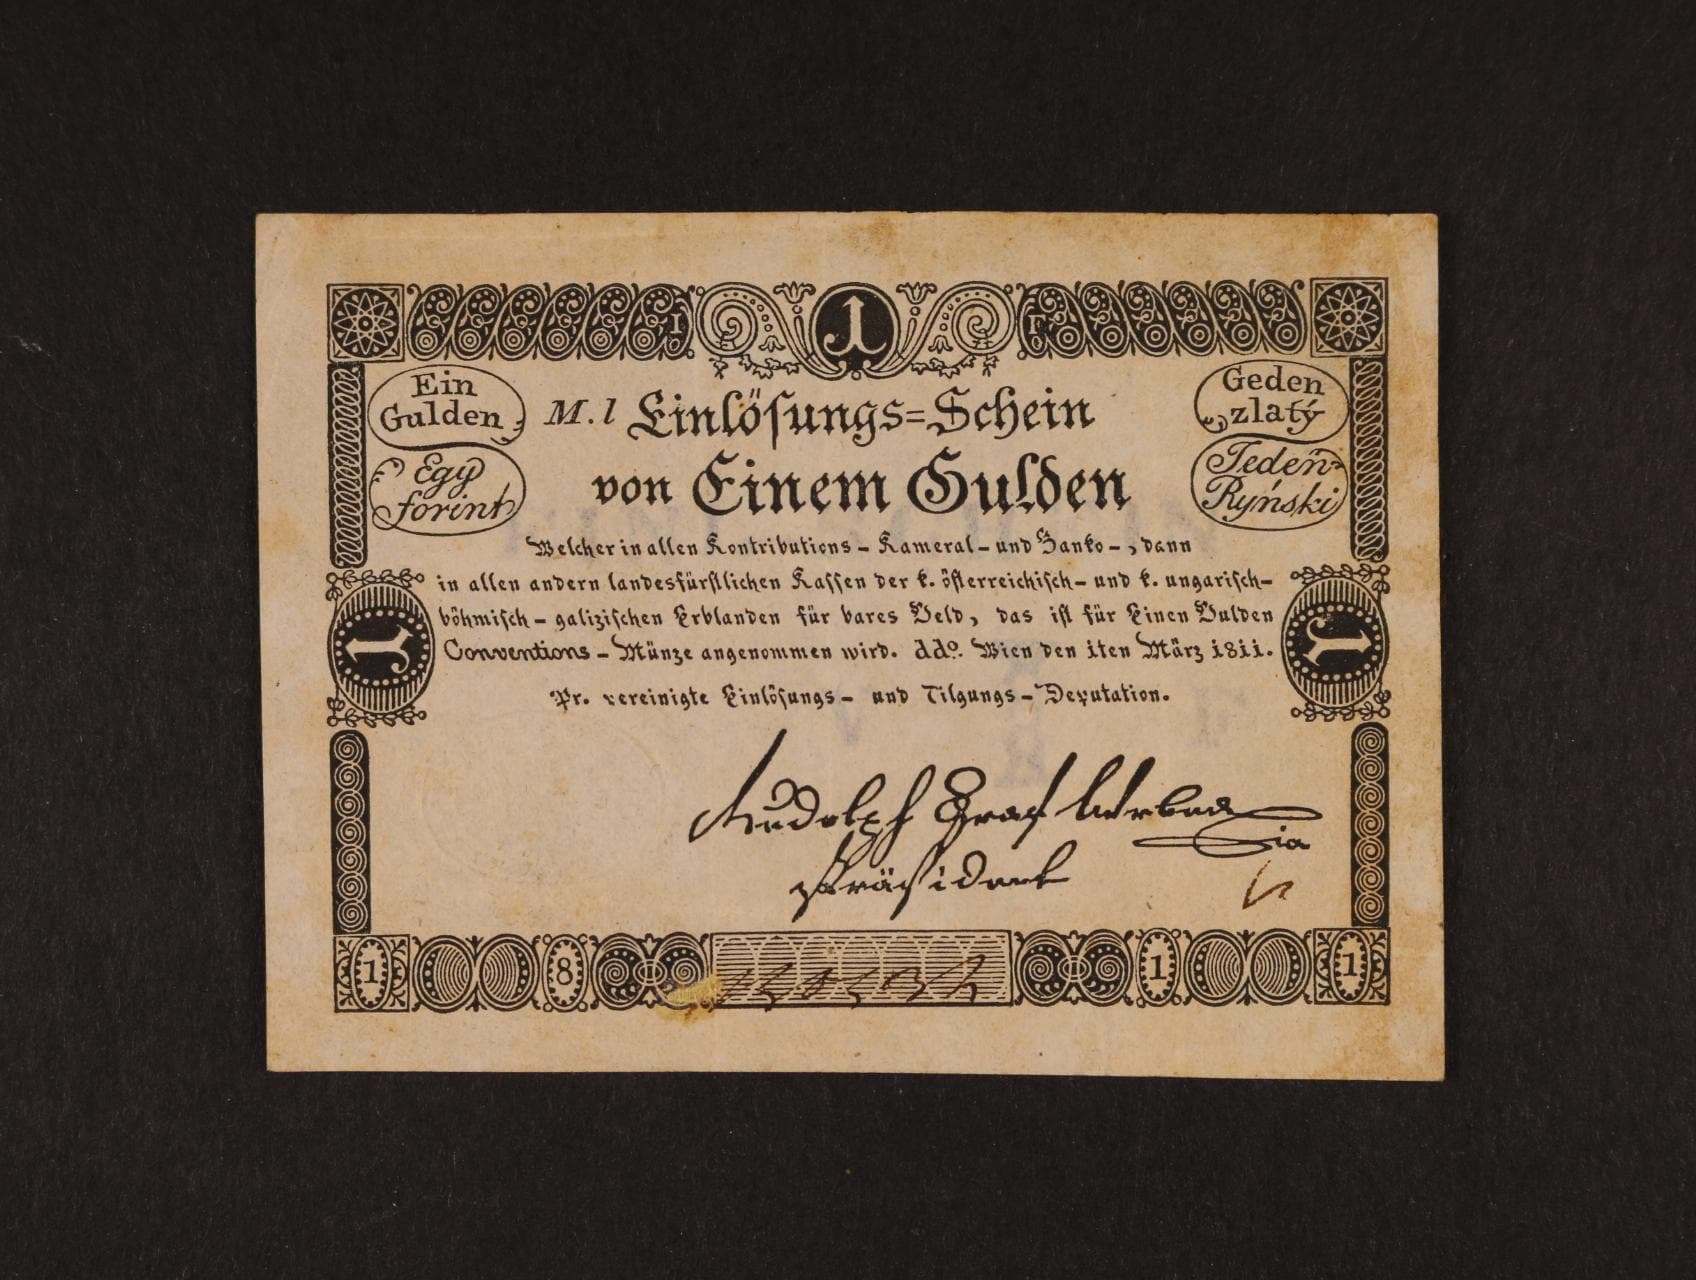 1
I
I
Ein
Gulden
Egy
forint
Geden
zlatý
Jeden
Ryński
M. 1 Einlösungs=Schein
von Einem Gulden
Welcher in allen Kontributions- Kameral- und Banko-, dann
in allen andern landesfürstlichen Kassen der k. österreichisch- und k. ungarisch-
böhmisch- galizischen Erblanden für bares Geld, das ist für Einen Gulden
Conventions- Münze angenommen wird. ddo. Wien den 1ten März 1811.
Pr. vereinigte Einlösungs- und Tilgungs-Deputation.
1
1
Rudolph Graf Wrbna
Präsident
1
8
1
1